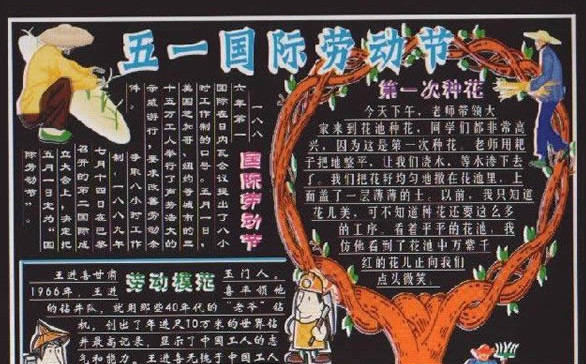 五一国际劳动节
国际劳动节
一八八
六年第一
国际在日内瓦会议提出了八小
时工作制的口号。五月一日，
美国芝加哥、纽约等城市的三
十五万工人举行了声势浩大的
示威游行，要求改善劳动条
件，争取八小时工作
制。一八八九年
七月十四日在巴黎
召开的第二国际成
立大会上，决定把
五月一日定为“国
际劳动节”。
第一次种花
今天下午，老师带领大
家来到花池种花，同学们都非常高
兴，因为这是第一次种花。老师用耙
子把地整平，让我们浇水，等水渗下去
了。我们把花籽均匀地撒在花池里，上
面盖了一层薄薄的土。以前，我只知道
花儿美，可不知道种花还要这么多
的工序。看着平平的花池，我
仿佛看到了花池中万紫千
红的花儿正向我们
点头微笑。
劳动模范
王进喜甘肃玉门人。
1966年，王进喜率领他
的钻井队，就用那些40年代的“老爷”钻
机，创出了年进尺10万米的世界钻
井最高记录，显示了中国工人的志
气和能力。王进喜无愧于中国工人